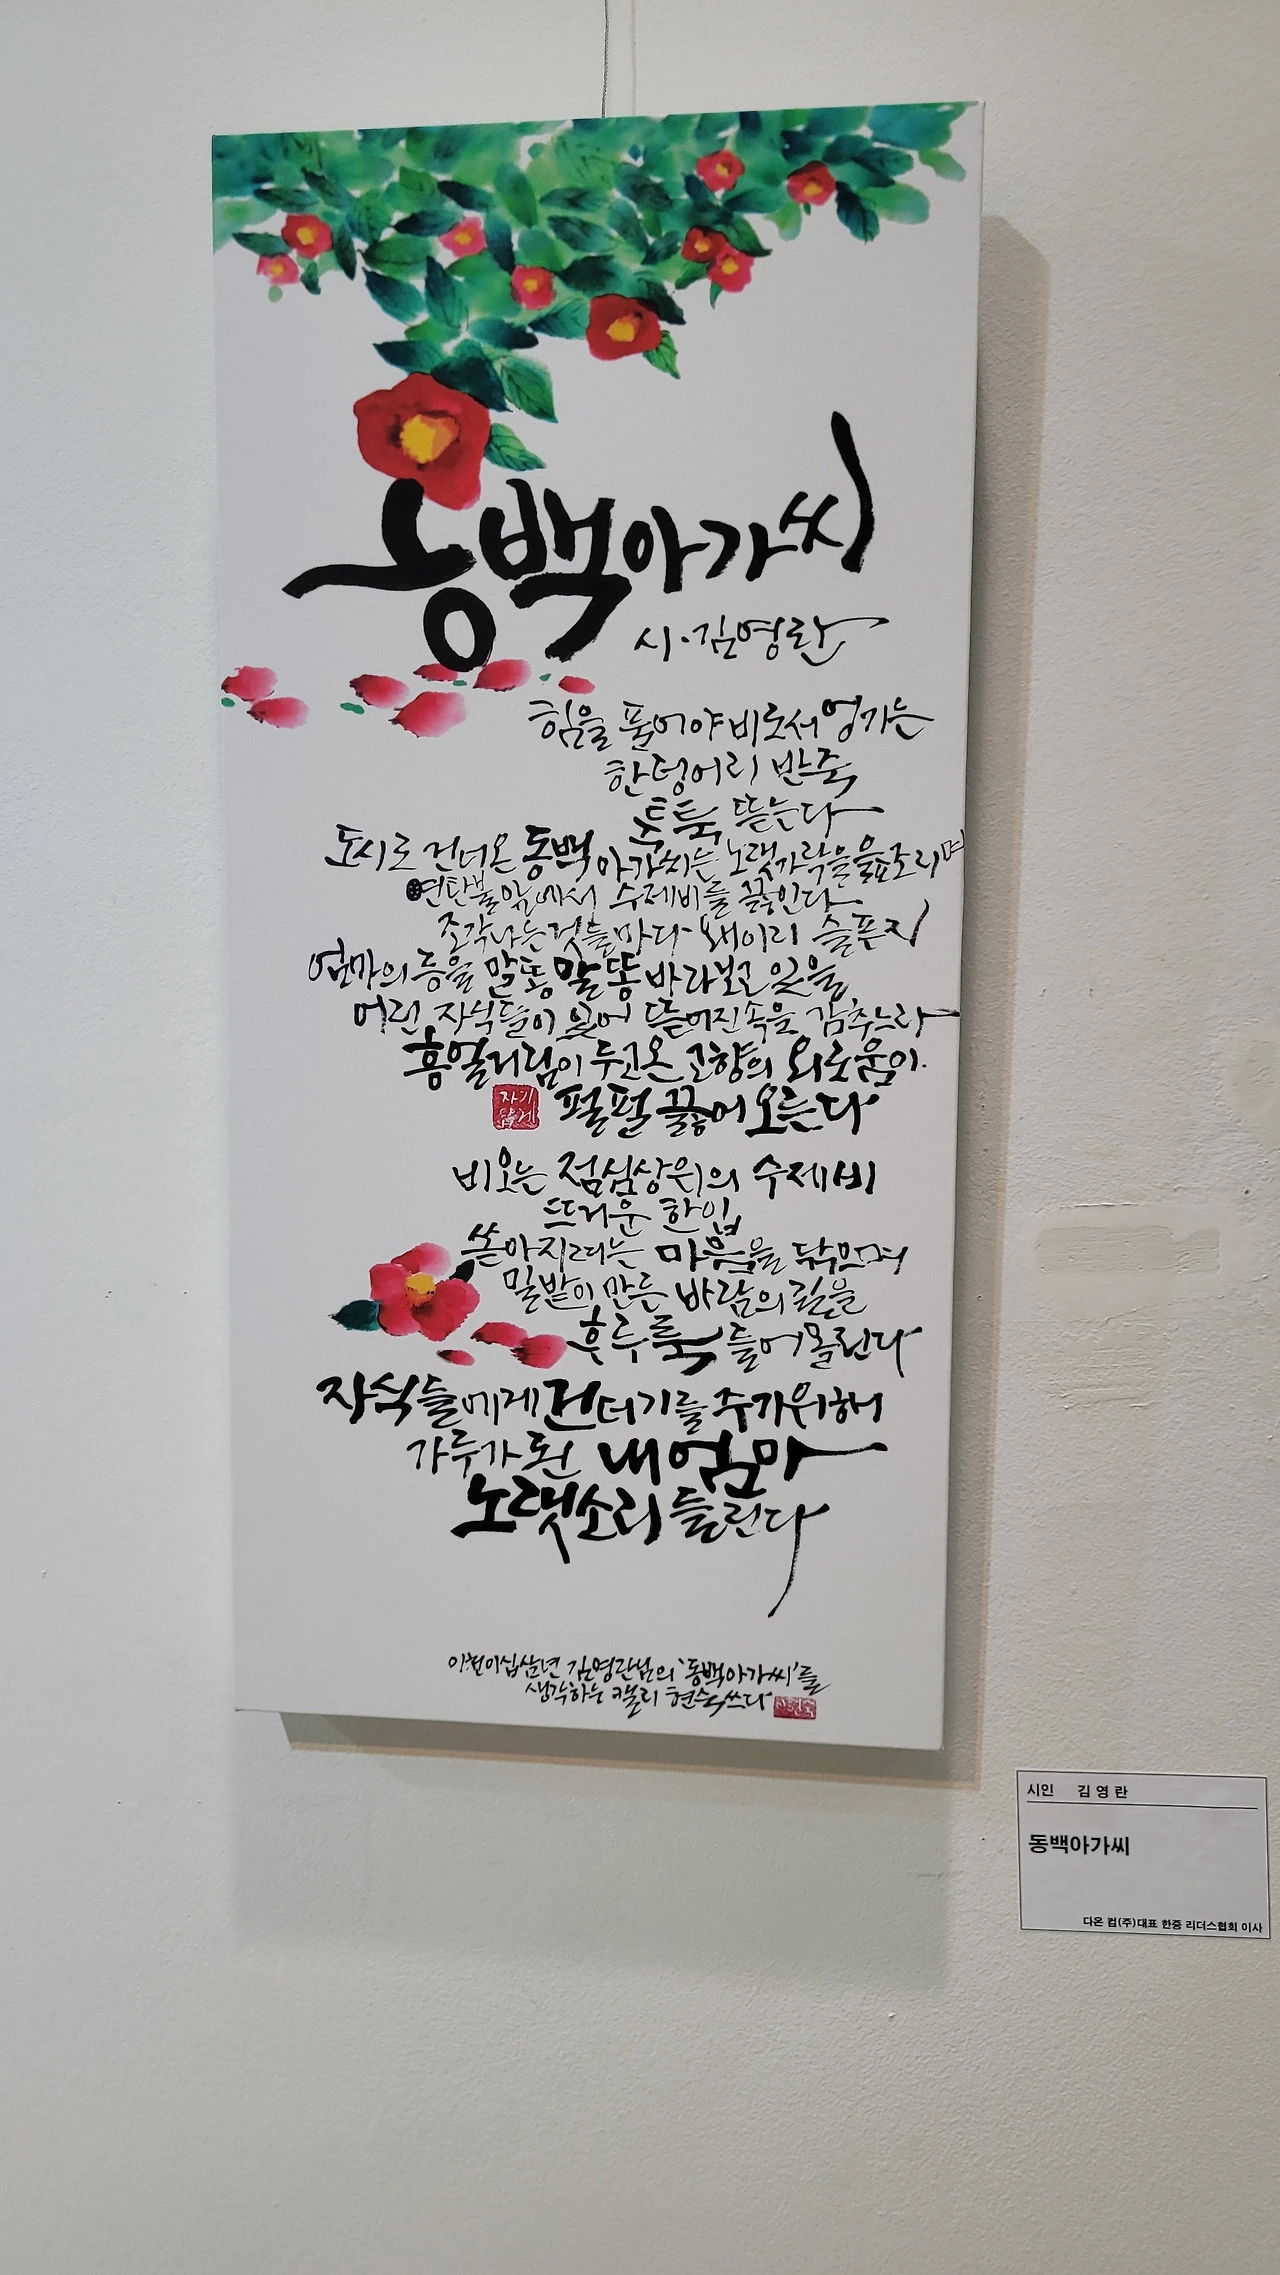 동백아가씨
시·김영란
힘을 풀어야 비로서 엉기는
한덩어리 반죽
툭툭 뜯는다
도시로 건너온 동백아가씨는 노랫가락을 읊조리며
연탄불앞에서 수제비를 끓인다
조각나는것들마다 왜이리 슬픈지
엄마의 등을 말똥말똥 바라보고 있을
어린 자식들이 있어 뜯어진속을 감추느라
흥얼거림이 두고온 고향의 외로움이
자기답게
펄펄 끓어오른다
비오는 점심상위의 수제비
뜨거운 한입
쏟아지려는 마음을 닦으며
밀밭이 만든 바람의 길을
후루룩 들어올린다
자식들에게 건더기를 주기위해
가루가 된 내엄마
노랫소리 들린다
이천이십삼년 김영란님의 '동백아가씨'를
생각하는 캘리 현숙쓰다
현숙
시인 김영란
동백아가씨
다온 컴(주)대표 한중 리더스협회 이사